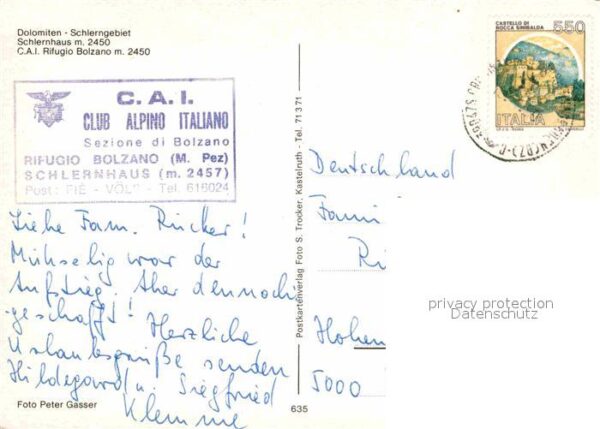 Dolomiten - Schlerngebiet
Schlernhaus m. 2450
C.A.I. Rifugio Bolzano m. 2450
C.A.I.
CLUB ALPINO ITALIANO
Sezione di Bolzano
RIFUGIO BOLZANO (M. Pez)
SCHLERNHAUS (m. 2457)
Post: FIÈ - VÖLS - Tel. 616024
Liebe Fam. Rücker!
Mühselig war der
Aufstieg. Aber dennoch
geschafft! Herzliche
Urlaubsgrüße senden
Hildegard u. Siegfried
Klemme
Foto Peter Gasser
635
Postkartenverlag Foto S. Trocker, Kastelruth - Tel. 71371
CASTELLO DI
ROCCA SINIBALDA
550
ITALIA
Deutschland
Fami
Hohen
5000
privacy protection
Datenschutz